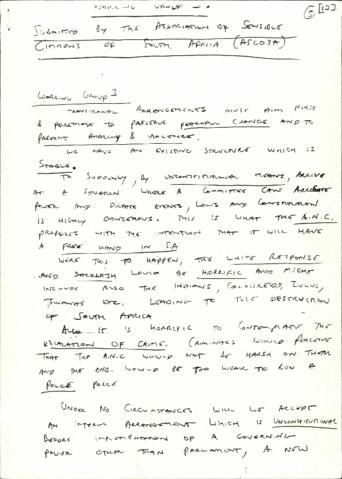 WORKING GROUP
(122)
SUBMITTED BY THE ASSOCIATION OF SENSIBLE
CITIZENS OF SOUTH AFRICA (ASCOSA)
WORKING GROUP 3
TRANSITIONAL ARRANGEMENTS MUST AIM FIRST
& FOREMOST TO PRESERVE PEACEFUL CHANGE AND TO
PREVENT ANARCHY & VIOLENCE.
WE HAVE AN EXISTING STRUCTURE WHICH IS
STABLE.
TO SUDDENLY, BY UNCONSTITUTIONAL MEANS, ARRIVE
AT A SITUATION WHERE A COMMITTEE CAN ARROGATE
POWER AND DICTATE EVENTS, LAWS AND CONSTITUTION
IS HIGHLY DANGEROUS. THIS IS WHAT THE A.N.C.
PROPOSES WITH THE INTENTION THAT IT WILL HAVE
A FREE HAND IN S.A
WERE THIS TO HAPPEN, THE WHITE RESPONSE
AND BACKLASH WOULD BE HORRIFIC AND MIGHT
INCLUDE ALSO THE INDIANS, COLOUREDS, ZULUS,
TSWANAS ETC, LEADING TO THE DESTRUCTION
OF SOUTH AFRICA
ALSO IT IS HORRIFIC TO CONTEMPLATE THE
ESCALATION OF CRIME. CRIMINALS WOULD PERCEIVE
THAT THE A.N.C WOULD NOT BE HARSH ON THEM
AND THE ANC. WOULD BE TOO WEAK TO RUN A
POLICE FORCE
UNDER NO CIRCUMSTANCES WILL WE ACCEPT
AN INTERIM ARRANGEMENT WHICH IS UNCONSTITUTIONAL
BEFORE IMPLEMENTATION OF A GOVERNING
POWER OTHER THAN PARLIAMENT, A NEW